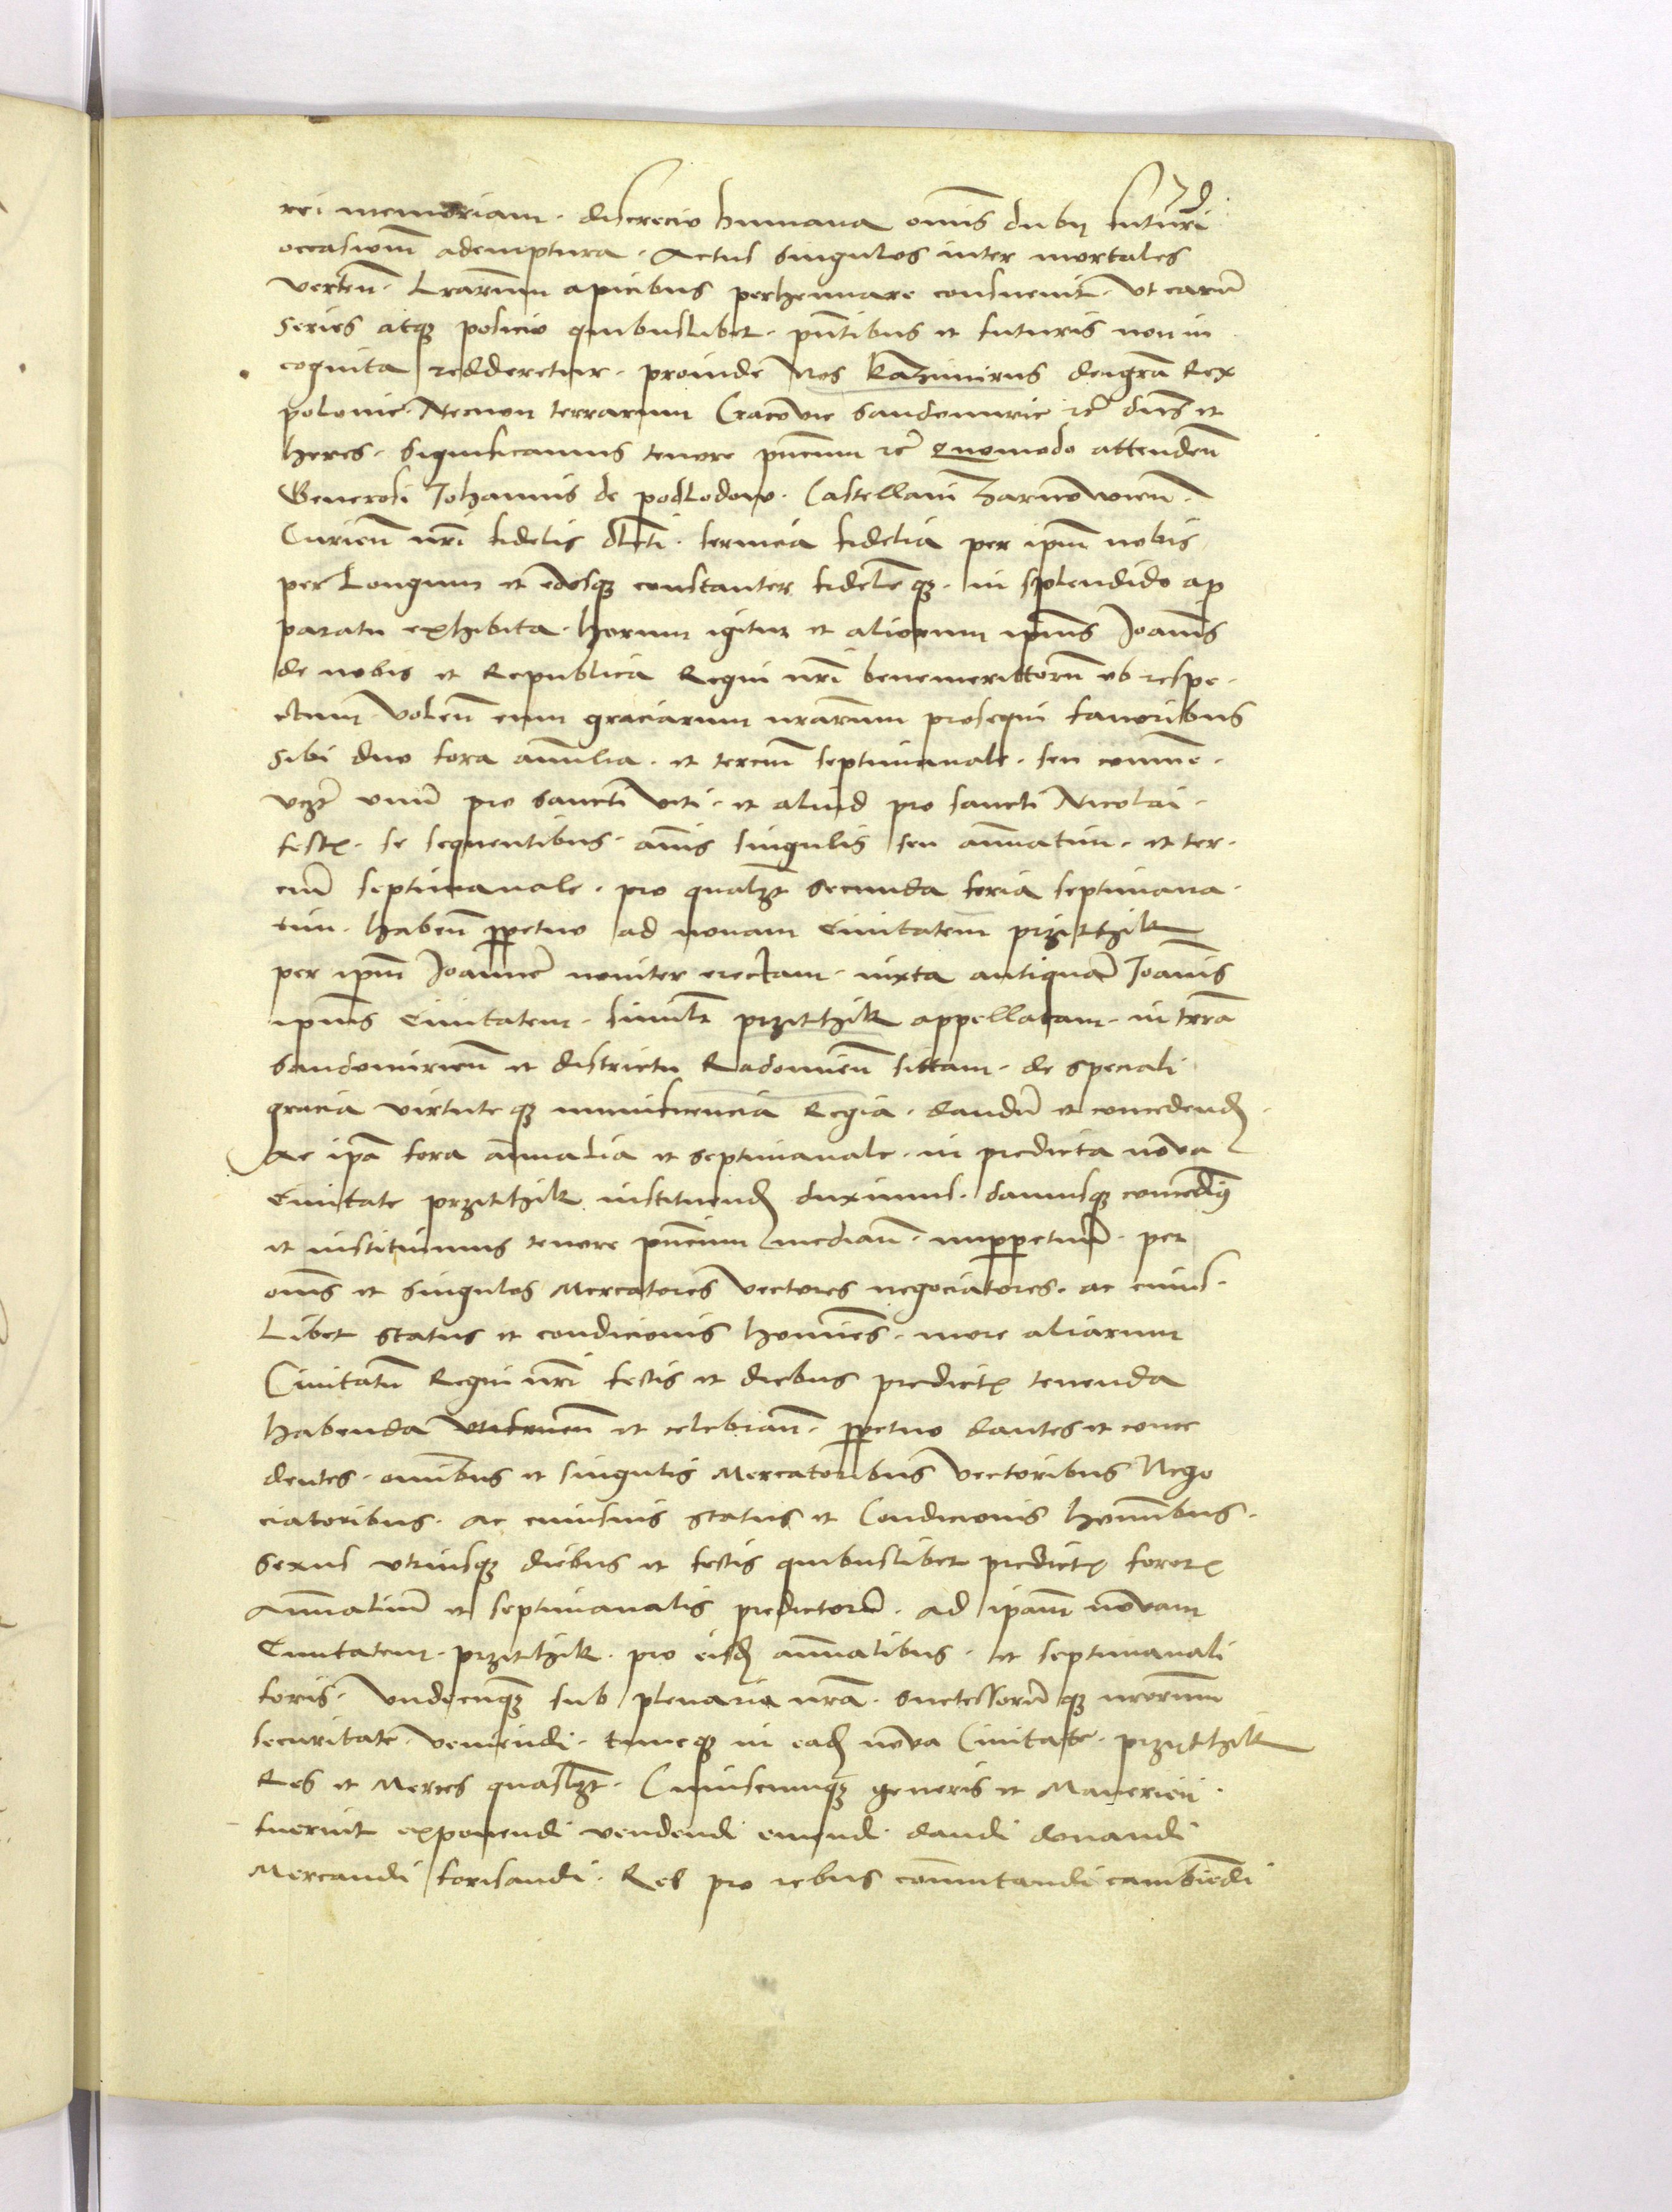 rei memoriam. discrecio humana om̄is dubÿ futuri
occasionē ademptura. Actus singulos inter mortales
vertēn. Lrārūm apicibus perhennare consuevit. Ut earū
series atq; posicio quibuslibet. pn̄tibus et futuris non in
cognita redderetur. proinde Nos kazimirus dei grā Rex
polonie. Necnon terrarum Cracovie Sandomirie etc̄ dn̄s et
heres. Significamus tenore pn̄cium etc̄ quomodo attenden̄
Generosi Johannis de podLodow. Castellani Zarnowien̄.
Curien̄ nrī fidelis dlc̄ti. servicia fidelia per ip̄m nobis
per Longum et eosq; constanter fidelē q;. in splendido ap
paratu exhibita. horum igitur et aliorum ip̄ius Joan̄is
de nobis et Republica Regni nrī benemerittorū ob respe.
ctum. volen̄ eum graciarum nrārum prosequi favoribus
sibi duo fora annūlia. et terciū septimanale. seu commē.
vcz̄t unū pro sancti viti. et aliud pro sancti Nicolai.
festꝭ. se sequentibus. an̄is singulis seu annuatim. et ter.
ciū septimanale. pro qualz̄t secunda feria septimana.
tim. haben̄ ꝑpetuo ad novam Civitatem przitthik
per ip̄m Joannē noviter erectam. iuxta antiquā Joan̄is
ip̄ius Civitatem. similr̄ przitthik appellatam. in terrā
Sandomirien̄ et districtu Radomien̄ sittam. de speciali
gracia virtute q; munificencia Regia. dandū et concedend̄.
Ac ip̄a fora annūalia et septimanale. in predicta nova
Civitate przitthik instituend̄ duximus. damusq; concedimꝰ
et instituimus tenore pn̄cium median̄. imꝑpetuū. per
om̄s et singulos Mercatores vectores negociatores. ac cuius.
Libet status et condicionis homines. more aliarum
Civitatū Regni nrī festis et diebus predictꝭ tenenda
habenda et celebran̄. ꝑpetuo dantes et conce
dentes. omnībus et singulis Mercatoribus vectoribus Nego
ciatoribus. ac cuiusuis status et Condicionis homībus.
sexus utriusq; diebus et festis quibuslibet predictꝭ forotꝭ
Annualiū et septimanalis predictorū. ad ip̄am novam
Civitatem. przitthik. pro eisd̄ annūalibus. et septimanali
foris. undecunq; sub plenaria nrā. Successorū q; nrōrum
securitate. veniendi. tuncq; in ead̄ nova Civitate. przytthik
Res et Merces quaslz̄t. Cuiuscunq; generis et Manerien̄
fuerint exponendi vendendi emendi dandi donandi
Mercandi forisandi. Res pro rebus com̄utandi cambiēdi